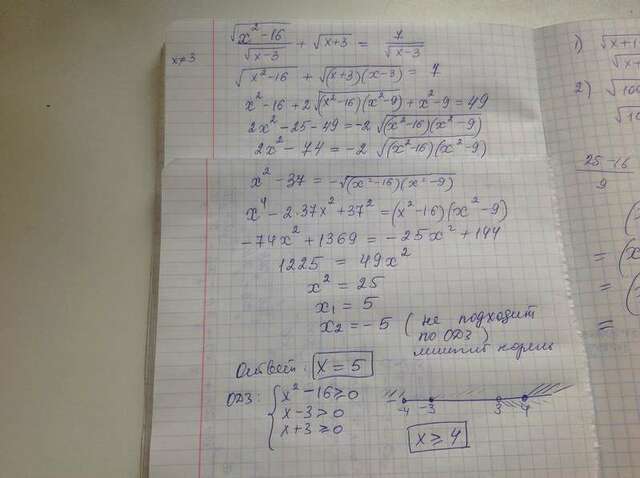 √(x²-16)/√(x-3) + √(x+3) = 7/√(x-3)
x≠3
√(x²-16) + √((x+3)(x-3)) = 7
x²-16+2√((x²-16)(x²-9))+x²-9=49
2x²-25-49=-2√((x²-16)(x²-9))
2x²-74=-2√((x²-16)(x²-9))
x²-37=-√((x²-16)(x²-9))
x⁴-2·37x²+37²=(x²-16)(x²-9)
-74x²+1369=-25x²+144
1225=49x²
x²=25
x₁=5
x₂=-5 (не подходит
по ОДЗ)
корень
Ответ: x=5
ОДЗ: { x²-16≥0
x-3>0
x+3≥0
-4 -3 3 4
x≥4
1) √x+1
√x+
2) √100
√10
25-16
9
= (x
= (
=